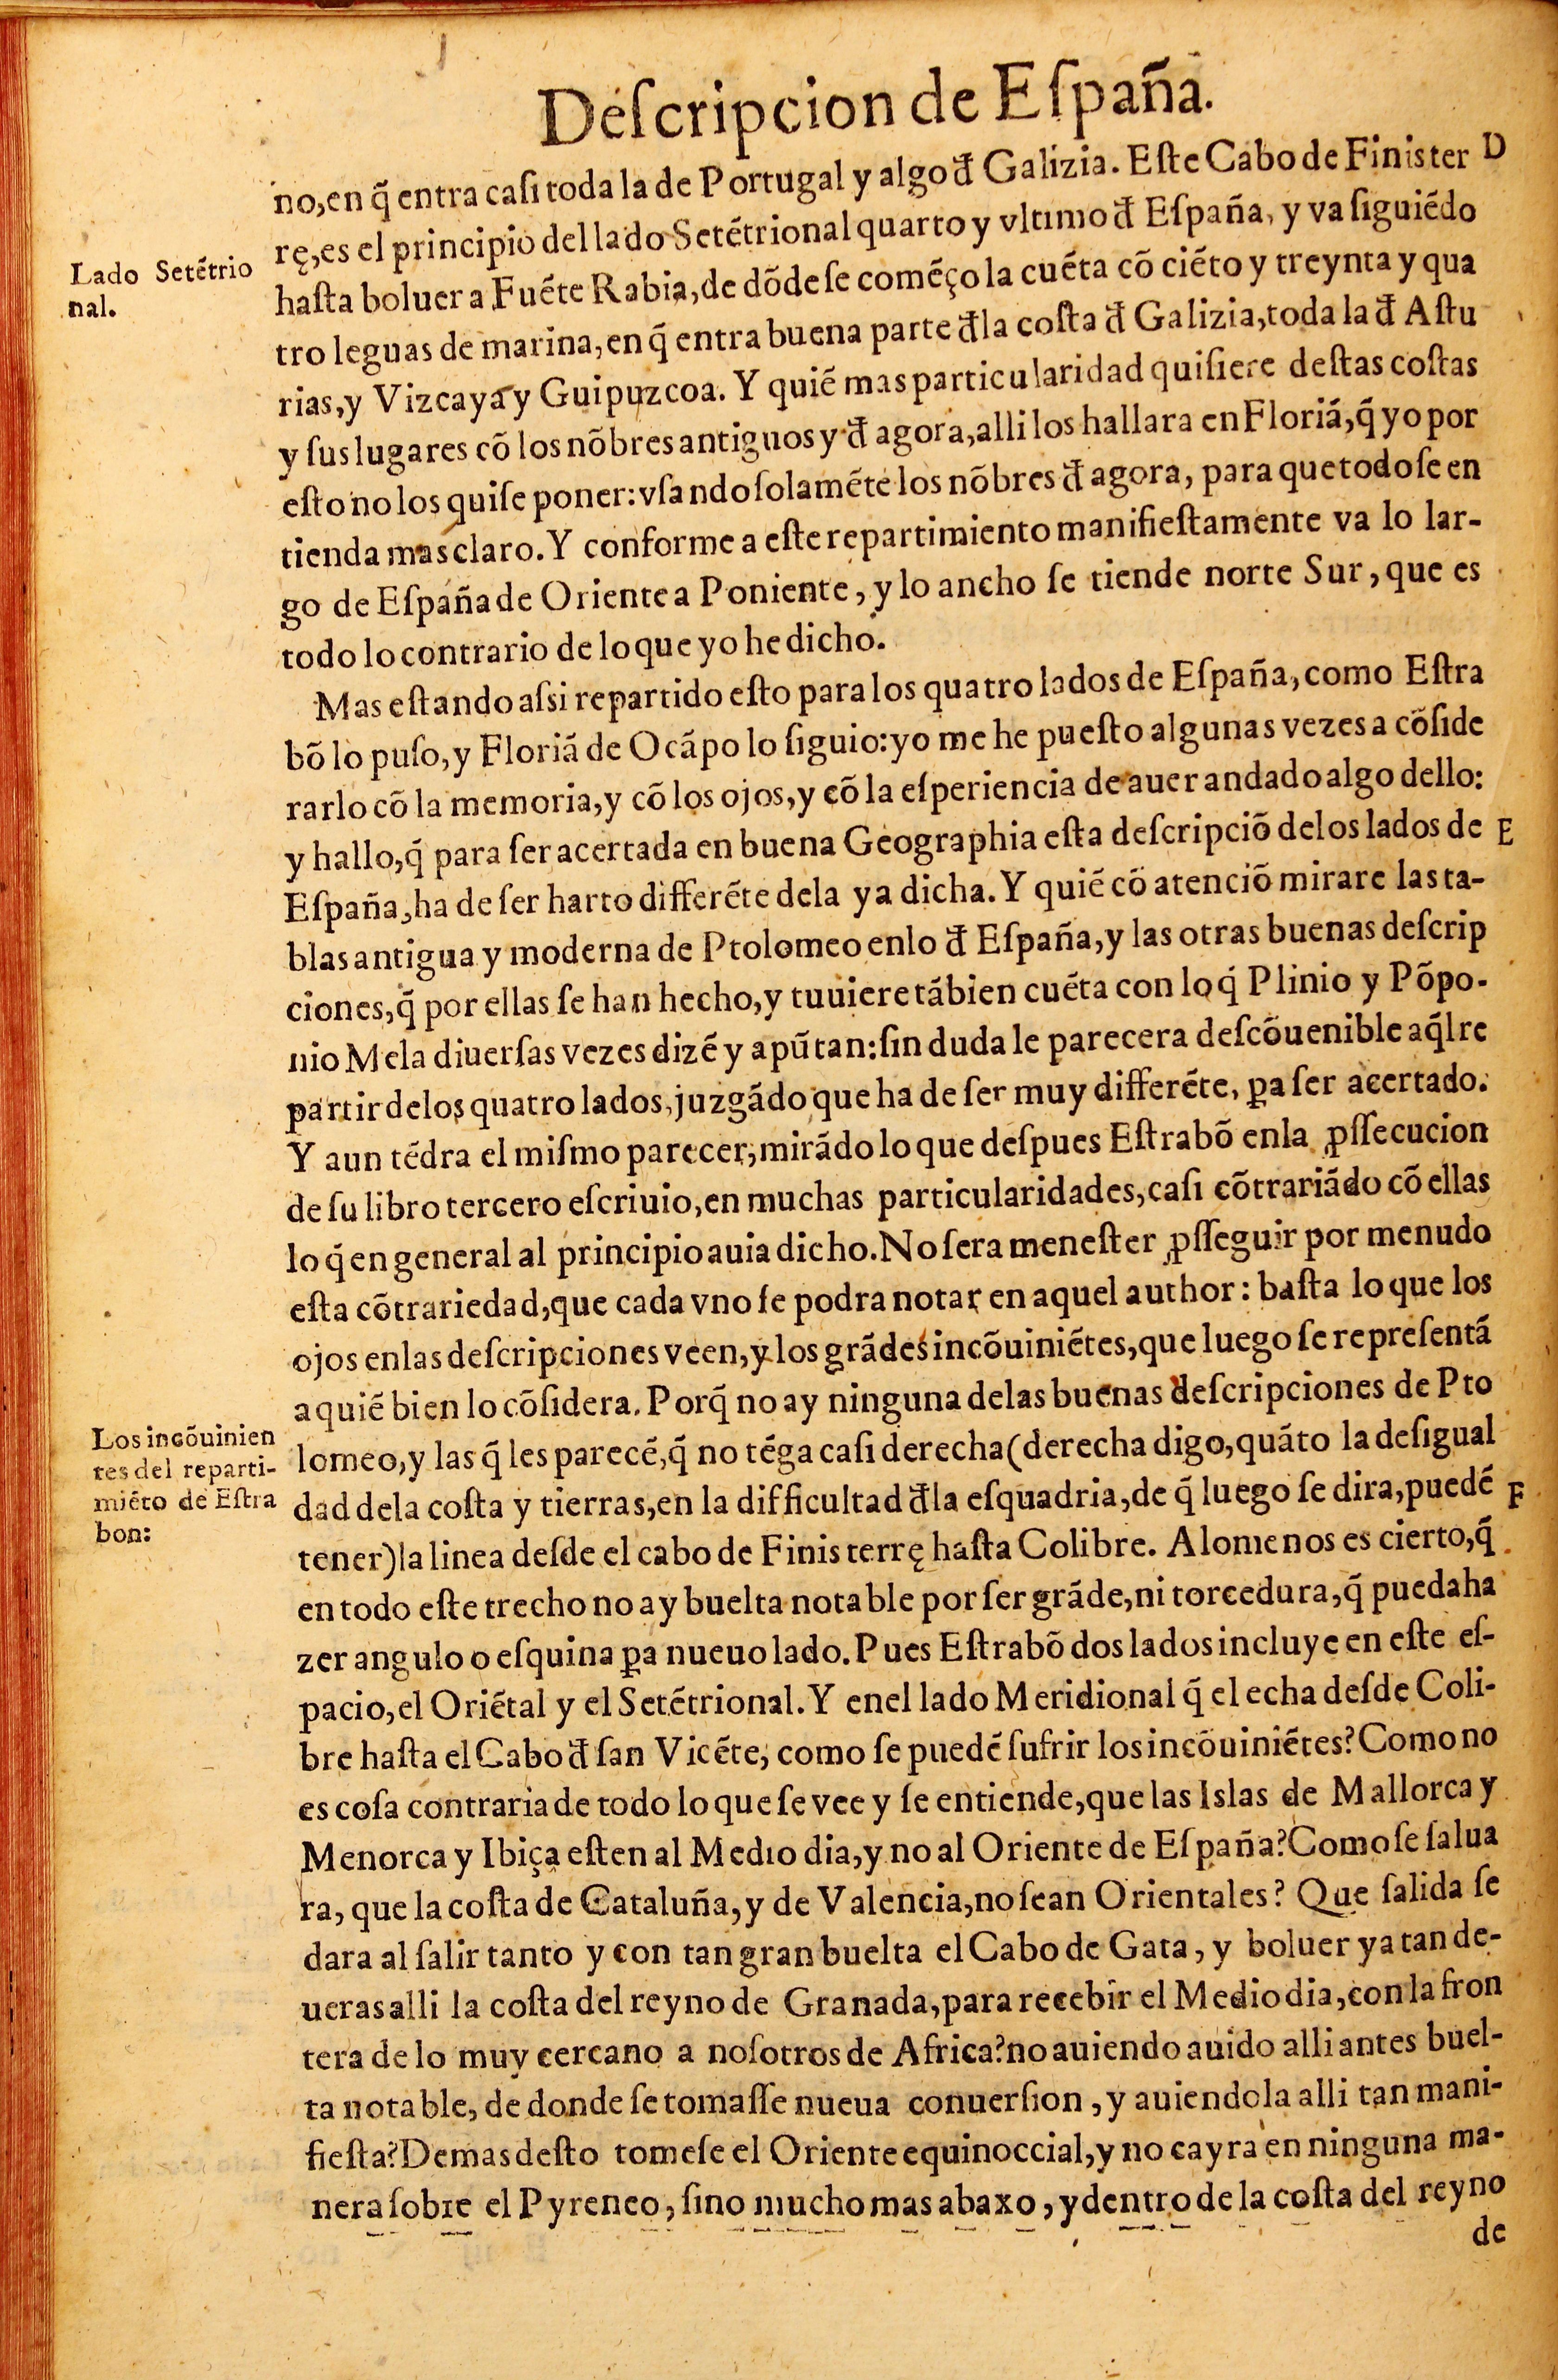 Deſcripcion de Eſpaña.
no, en q̃ entra caſi toda la de Portugal y algo đ Galizia. Eſte Cabo de Finister D
rę, es el principio del lado Setẽtrional quarto y vltimo đ Eſpaña, y va ſiguiẽdo
Lado Setẽtrio
nal.
haſta boluer a Fuẽte Rabia, de dõde ſe comẽço la cuẽta cõ ciẽto y treynta y qua
tro leguas de marina, en q̃ entra buena parte đla coſta đ Galizia, toda la đ Aſtu
rias, y Vizcaya y Guipuzcoa. Y quiẽ mas particularidad quiſiere deſtas coſtas
y ſus lugares cõ los nõbres antiguos y đ agora, alli los hallara en Floriã, q̃ yo por
eſto no los quiſe poner: vſando ſolamẽte los nõbres đ agora, para que todo ſe en
tienda mas claro. Y conforme a eſte repartimiento manifieſtamente va lo lar-
go de Eſpaña de Oriente a Poniente, y lo ancho ſe tiende norte Sur, que es
todo lo contrario de lo que yo he dicho.
Mas eſtando aſsi repartido eſto para los quatro lados de Eſpaña, como Eſtra
bõ lo puſo, y Floriã de Ocãpo lo ſiguio: yo me he pueſto algunas vezes a cõſide
rarlo cõ la memoria, y cõ los ojos, y cõ la eſperiencia de auer andado algo dello:
y hallo, q̃ para ſer acertada en buena Geographia eſta deſcripciõ delos lados de E
Eſpaña, ha de ſer harto differẽte dela ya dicha. Y quiẽ cõ atenciõ mirare las ta-
blas antigua y moderna de Ptolomeo enlo đ Eſpaña, y las otras buenas deſcrip
ciones, q̃ por ellas ſe han hecho, y tuuiere tãbien cuẽta con lo q̃ Plinio y Põpo-
nio Mela diuerſas vezes dizẽ y apũtan: ſin duda le parecera deſcõuenible aq̃l re
partir delos quatro lados, juzgãdo que ha de ſer muy differẽte, ꝑa ſer acertado.
Y aun tẽdra el miſmo parecer, mirãdo lo que deſpues Eſtrabõ enla ꝓſſecucion
de ſu libro tercero eſcriuio, en muchas particularidades, caſi cõtrariãdo cõ ellas
lo q̃ en general al principio auia dicho. No ſera meneſter ꝓſſeguir por menudo
eſta cõtrariedad, que cada vno ſe podra notar en aquel author: baſta lo que los
ojos enlas deſcripciones veen, y los grãdes incõuiniẽtes, que luego ſe repreſentã
a quiẽ bien lo cõſidera. Porq̃ no ay ninguna delas buenas deſcripciones de Pto
Los incõuinien
tes del reparti-
miẽto de Eſtra
bon:
lomeo, y las q̃ les parecẽ, q̃ no tẽga caſi derecha (derecha digo, quãto la deſigual
dad dela coſta y tierras, en la difficultad đla eſquadria, de q̃ luego ſe dira, puedẽ F
tener) la linea deſde el cabo de Finis terrę haſta Colibre. Alomenos es cierto, q̃
en todo eſte trecho no ay buelta notable por ſer grãde, ni torcedura, q̃ pueda ha
zer angulo o eſquina ꝑa nueuo lado. Pues Eſtrabõ dos lados incluye en eſte eſ-
pacio, el Oriẽtal y el Setẽtrional. Y enel lado Meridional q̃ el echa deſde Coli-
bre haſta el Cabo đ ſan Vicẽte, como ſe puedẽ ſufrir los incõuiniẽtes? Como no
es coſa contraria de todo lo que ſe vee y ſe entiende, que las Islas de Mallorca y
Menorca y Ibiça eſten al Medio dia, y no al Oriente de Eſpaña? Como ſe ſalua
ra, que la coſta de Cataluña, y de Valencia, no ſean Orientales? Que ſalida ſe
dara al ſalir tanto y con tan gran buelta el Cabo de Gata, y boluer ya tan de-
ueras alli la coſta del reyno de Granada, para recebir el Mediodia, con la fron
tera de lo muy cercano a noſotros de Africa? no auiendo auido alli antes buel-
ta notable, de donde ſe tomaſſe nueua conuerſion, y auiendola alli tan mani-
fieſta? Demas deſto tomeſe el Oriente equinoccial, y no cayra en ninguna ma-
nera ſobre el Pyreneo, ſino mucho mas abaxo, y dentro de la coſta del reyno
de